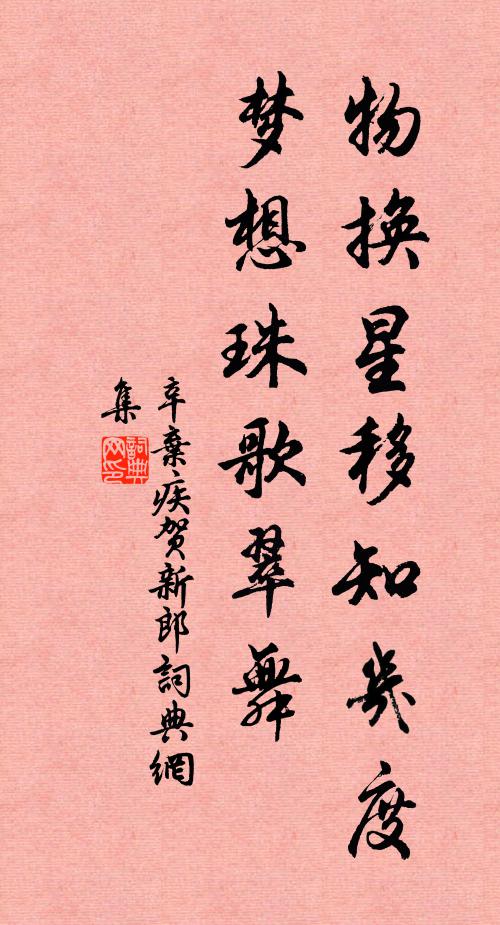 物换星移知幾度
梦想珠歌翠舞
辛棄疾贺新郎詞典網
集
詞典网印